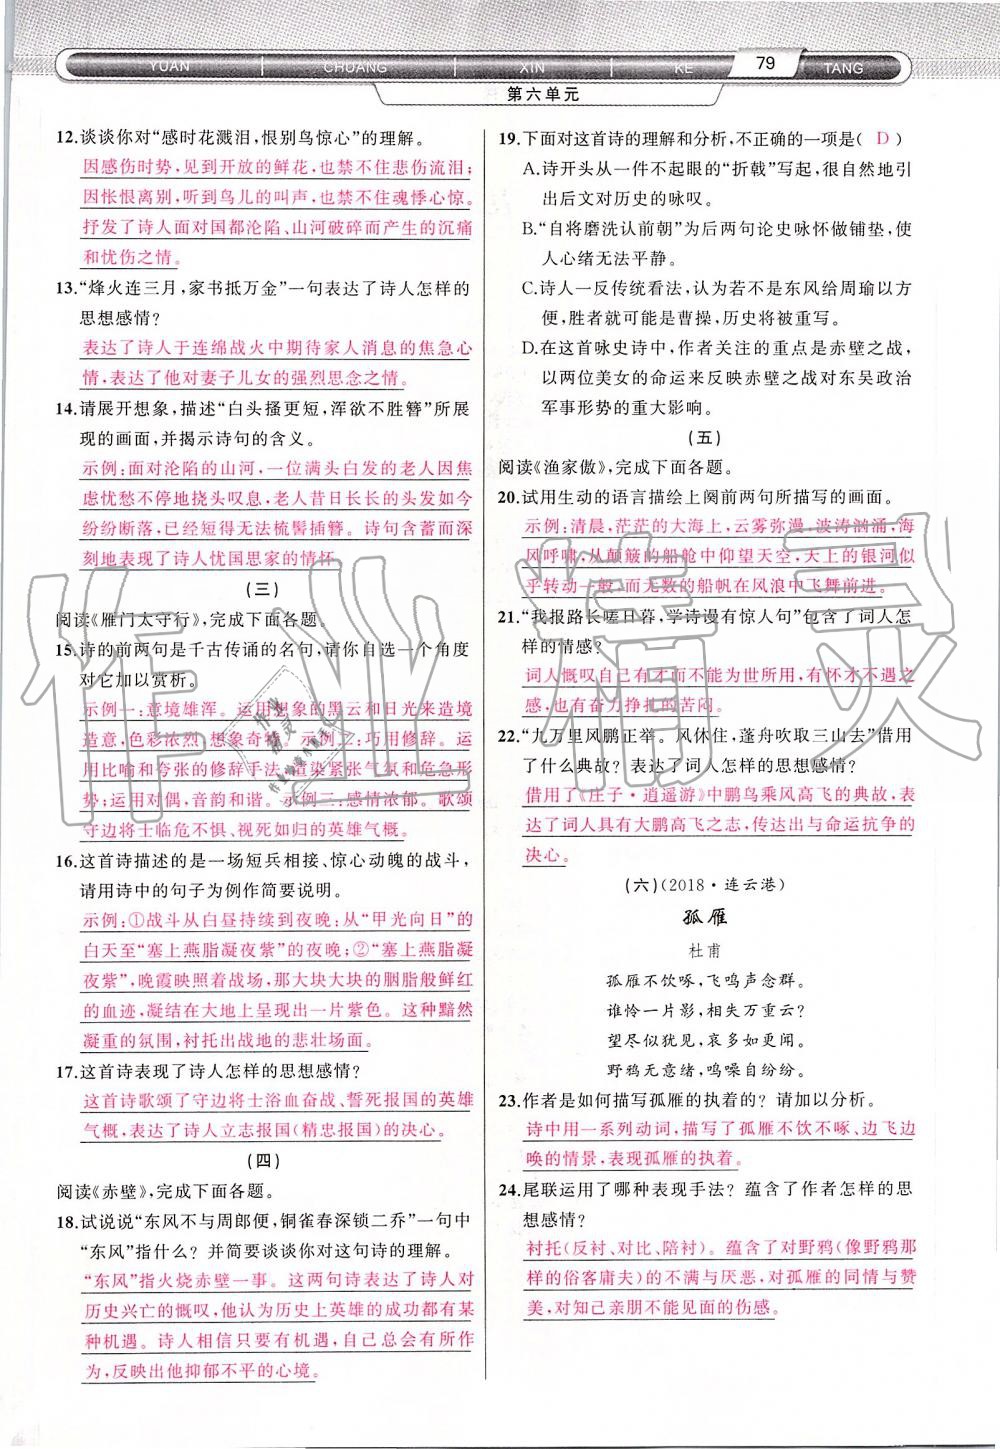 YUAN CHUANG XIN KE 79 TANG
第六单元
12.谈谈你对“感时花溅泪,恨别鸟惊心”的理解。
因感伤时势,见到开放的鲜花,也禁不住悲伤流泪;
因怅恨离别,听到鸟儿的叫声,也禁不住魂悸心惊。
抒发了诗人面对国都沦陷、山河破碎而产生的沉痛
和忧伤之情。
13.“烽火连三月,家书抵万金”一句表达了诗人怎样的
思想感情?
表达了诗人于连绵战火中期待家人消息的焦急心
情,表达了他对妻子儿女的强烈思念之情。
14.请展开想象,描述“白头搔更短,浑欲不胜簪”所展
现的画面,并揭示诗句的含义。
示例:面对沦陷的山河,一位满头白发的老人因焦
虑忧愁不停地挠头叹息,老人昔日长长的头发如今
纷纷断落,已经短得无法梳髻插簪。诗句含蓄而深
刻地表现了诗人忧国思家的情怀。
(三)
阅读《雁门太守行》,完成下面各题。
15.诗的前两句是千古传诵的名句,请你自选一个角度
对它加以赏析。
示例一:意境雄浑。运用想象的黑云和日光来造境
造意,色彩浓烈、想象奇特。示例二:巧用修辞。运
用比喻和夸张的修辞手法,渲染紧张气氛和危急形
势;运用对偶,音韵和谐。示例三:感情浓郁。歌颂
守边将士临危不惧、视死如归的英雄气概。
16.这首诗描述的是一场短兵相接、惊心动魄的战斗,
请用诗中的句子为例作简要说明。
示例:①战斗从白昼持续到夜晚:从“甲光向日”的
白天至“塞上燕脂凝夜紫”的夜晚;②“塞上燕脂凝
夜紫”,晚霞映照着战场,那大块大块的胭脂般鲜红
的血迹,凝结在大地上呈现出一片紫色。这种黯然
凝重的氛围,衬托出战地的悲壮场面。
17.这首诗表现了诗人怎样的思想感情?
这首诗歌颂了守边将士浴血奋战、誓死报国的英雄
气概,表达了诗人立志报国(精忠报国)的决心。
(四)
阅读《赤壁》,完成下面各题。
18.试说说“东风不与周郎便,铜雀春深锁二乔”一句中
“东风”指什么?并简要谈谈你对这句诗的理解。
“东风”指火烧赤壁一事。这两句诗表达了诗人对
历史兴亡的慨叹,他认为历史上英雄的成功都有某
种机遇。诗人相信只要有机遇,自己总会有所作
为,反映出他抑郁不平的心境。
19.下面对这首诗的理解和分析,不正确的一项是( D )
A.诗开头从一件不起眼的“折戟”写起,很自然地引
出后文对历史的咏叹。
B.“自将磨洗认前朝”为后两句论史咏怀做铺垫,使
人心绪无法平静。
C.诗人一反传统看法,认为若不是东风给周瑜以方
便,胜者就可能是曹操,历史将被重写。
D.在这首咏史诗中,作者关注的重点是赤壁之战,
以两位美女的命运来反映赤壁之战对东吴政治
军事形势的重大影响。
(五)
阅读《渔家傲》,完成下面各题。
20.试用生动的语言描绘上阕前两句所描写的画面。
示例:清晨,茫茫的大海上,云雾弥漫,波涛汹涌,海
风呼啸,从颠簸的船舱中仰望天空,天上的银河似
乎转动一般,而无数的船帆在风浪中飞舞前进。
21.“我报路长嗟日暮,学诗谩有惊人句”包含了词人怎
样的情感?
词人慨叹自己有才而不能为世所用,有怀才不遇之
感,也有奋力挣扎的苦闷。
22.“九万里风鹏正举。风休住,蓬舟吹取三山去”借用
了什么典故?表达了词人怎样的思想感情?
借用了《庄子·逍遥游》中鹏鸟乘风高飞的典故,表
达了词人具有大鹏高飞之志,传达出与命运抗争的
决心。
(六)(2018·连云港)
孤雁
杜甫
孤雁不饮啄,飞鸣声念群。
谁怜一片影,相失万重云?
望尽似犹见,哀多如更闻。
野鸦无意绪,鸣噪自纷纷。
23.作者是如何描写孤雁的执着的?请加以分析。
诗中用一系列动词,描写了孤雁不饮不啄、边飞边
唤的情景,表现孤雁的执着。
24.尾联运用了哪种表现手法?蕴含了作者怎样的思
想感情?
衬托(反衬、对比、陪衬)。蕴含了对野鸦(像野鸦那
样的俗客庸夫)的不满与厌恶,对孤雁的同情与赞
美,对知己亲朋不能见面的伤感。
作业精灵